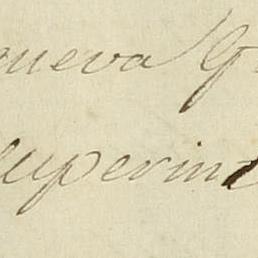 nueva G
uperin